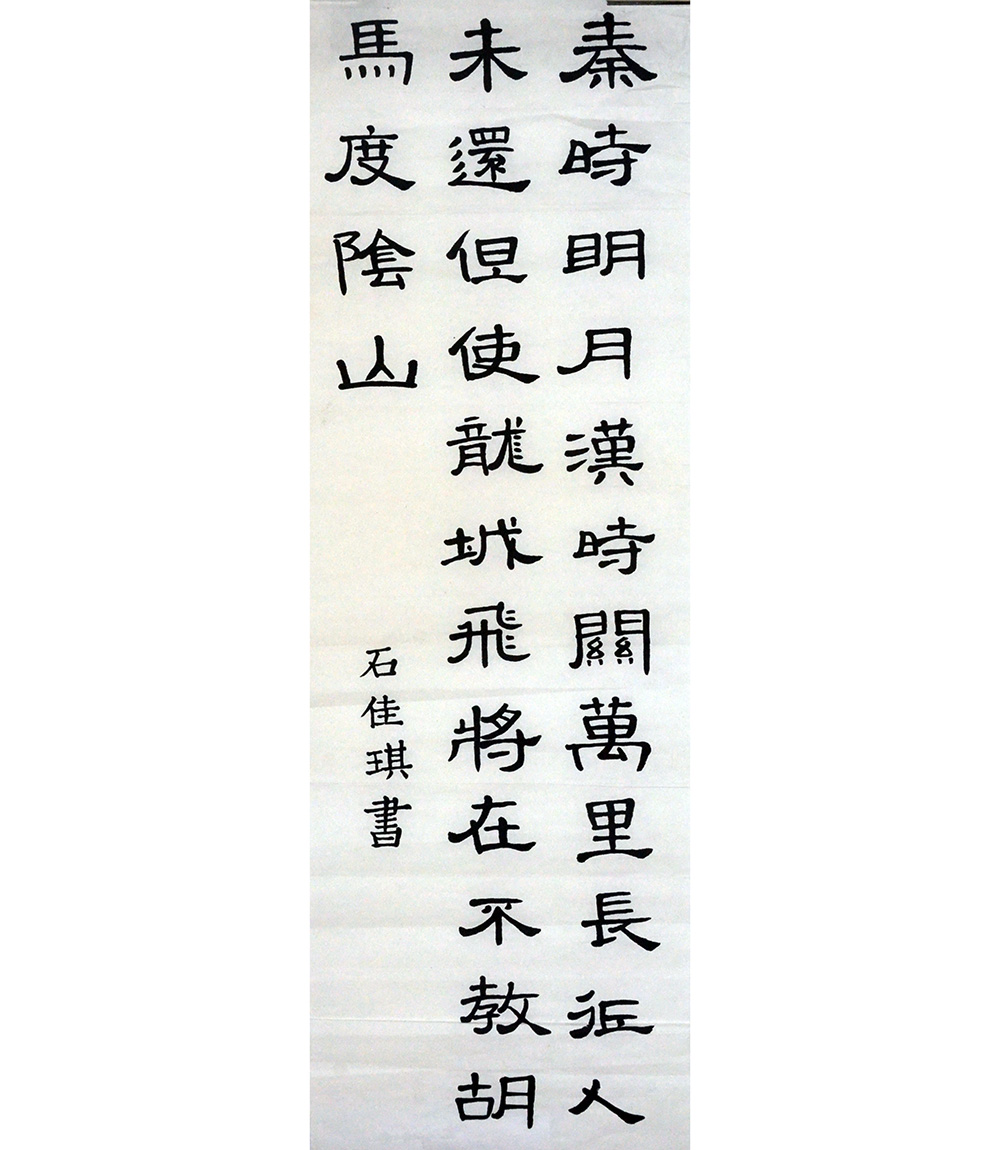 秦時明月漢時關萬里長征人
未還但使龍城飛將在不教胡
馬度陰山
石佳琪書